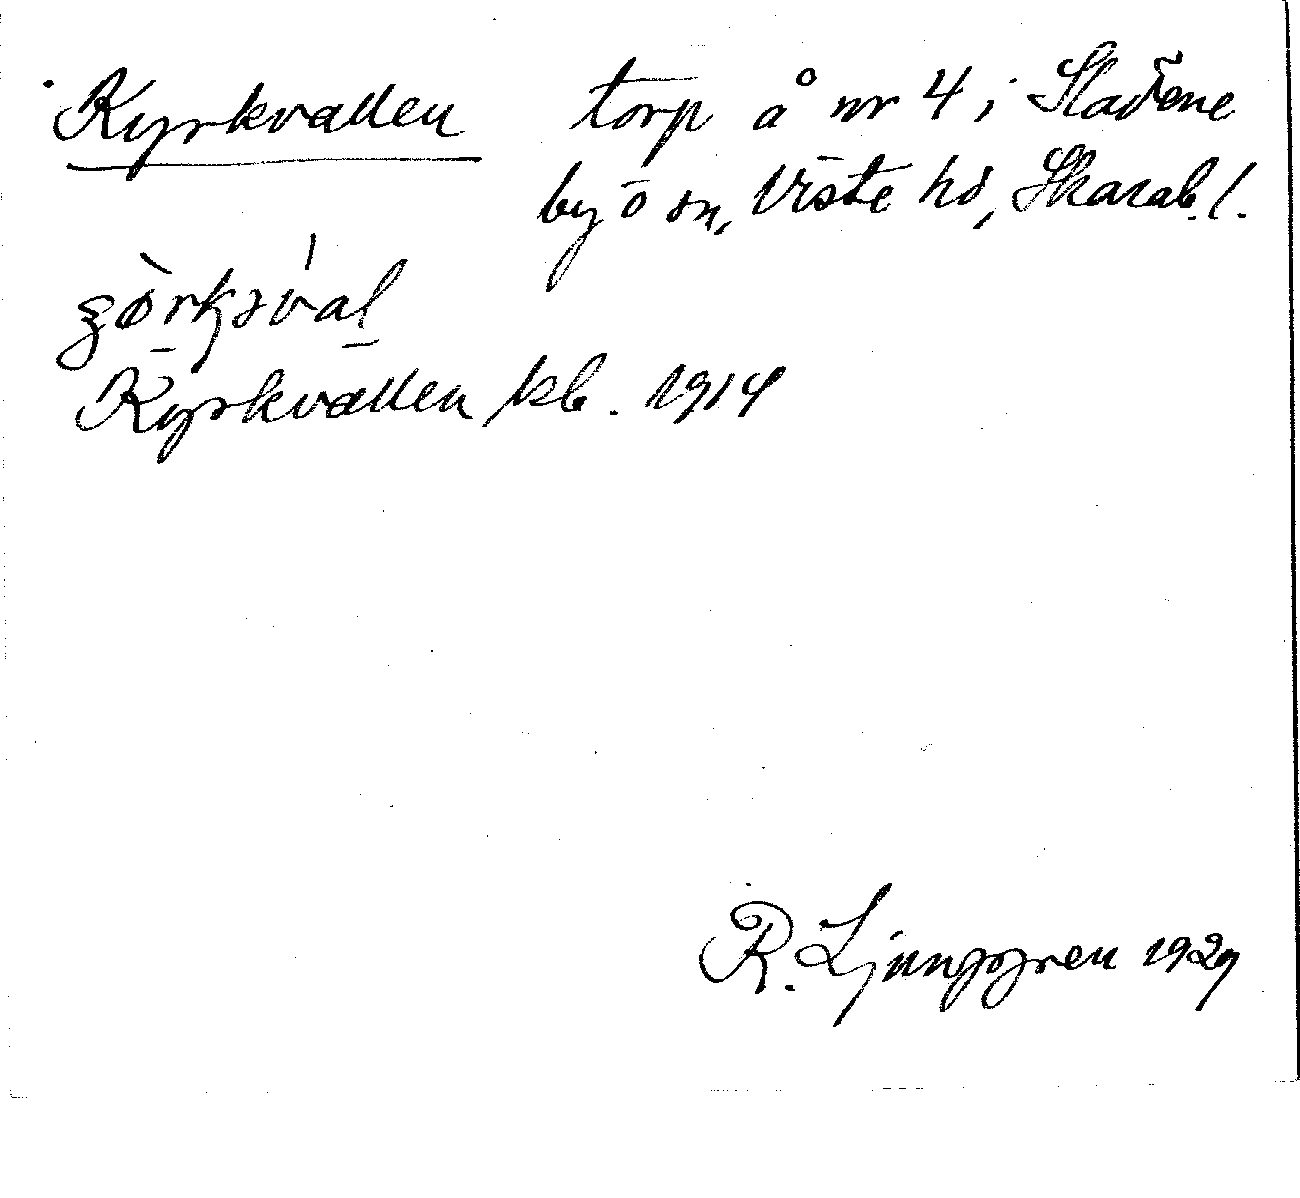 Kyrkvallen torp å nr 4 i Sladene
by ō sn, Viste hd, Skarab. l.
Kyrkvallen kb. 1914
R. Ljunggren 1929